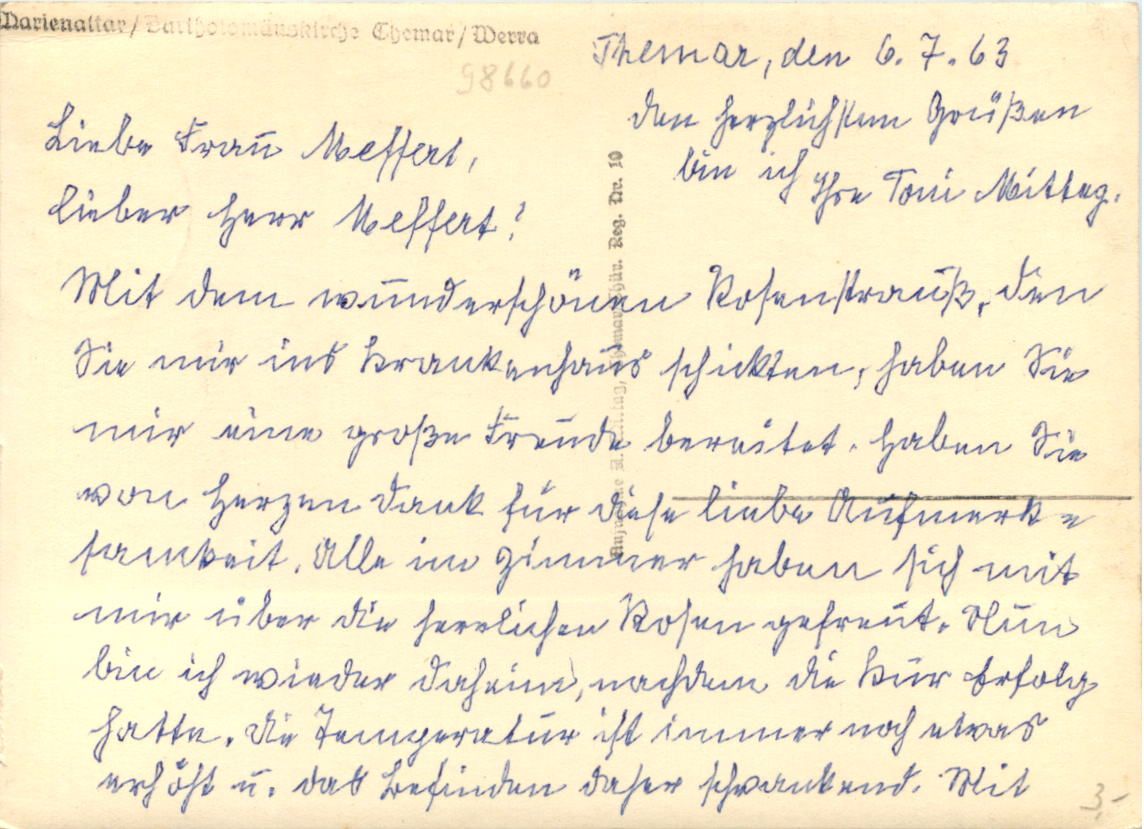 Marienaltar/Bartholomäuskirche Themar/Werra
98660
Themar, den 6.7.63
Liebe Frau Meffert,
lieber Herr Meffert!
Mit dem wunderschönen Rosenstrauß, den
Sie mir ins Krankenhaus schickten, haben Sie
mir eine große Freude bereitet. Haben Sie
von Herzen Dank für diese liebe Aufmerk=
samkeit. Alle im Zimmer haben sich mit
mir über die herrlichen Rosen gefreut. Nun
bin ich wieder daheim, nachdem die Kur Erfolg
hatte. Die Temperatur ist immer noch etwas
erhöht u. das Befinden daher schwankend. Mit
den herzlichsten Grüßen
bin ich
Ihre Toni Mittag.
Reg. Nr. 10
3,-